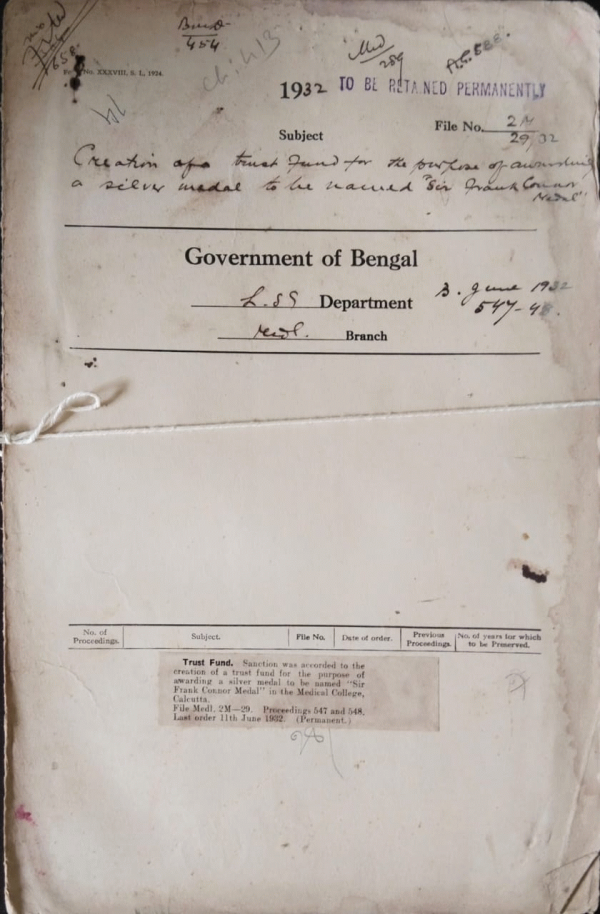 454
Med
289
No. XXXVIII, S. L., 1924.
1932 TO BE RETAINED PERMANENTLY
File No. 2M
29/32
Subject
Creation of a trust Fund for the purpose of awarding
a silver medal to be named "Sir Frank Connor
Medal"
Government of Bengal
L.SG Department
B. June 1932
547-48.
Medl. Branch
No. of Proceedings. Subject. File No. Date of order. Previous Proceedings. No. of years for which to be Preserved.
Trust Fund. Sanction was accorded to the
creation of a trust fund for the purpose of
awarding a silver medal to be named "Sir
Frank Connor Medal" in the Medical College,
Calcutta.
File Medl. 2M—29. Proceedings 547 and 548.
Last order 11th June 1932. (Permanent.)